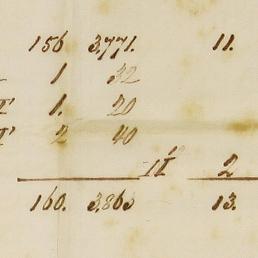 156 3,771. 11.
1 32
1. 20
2 40
11 2
160. 3,863 13.